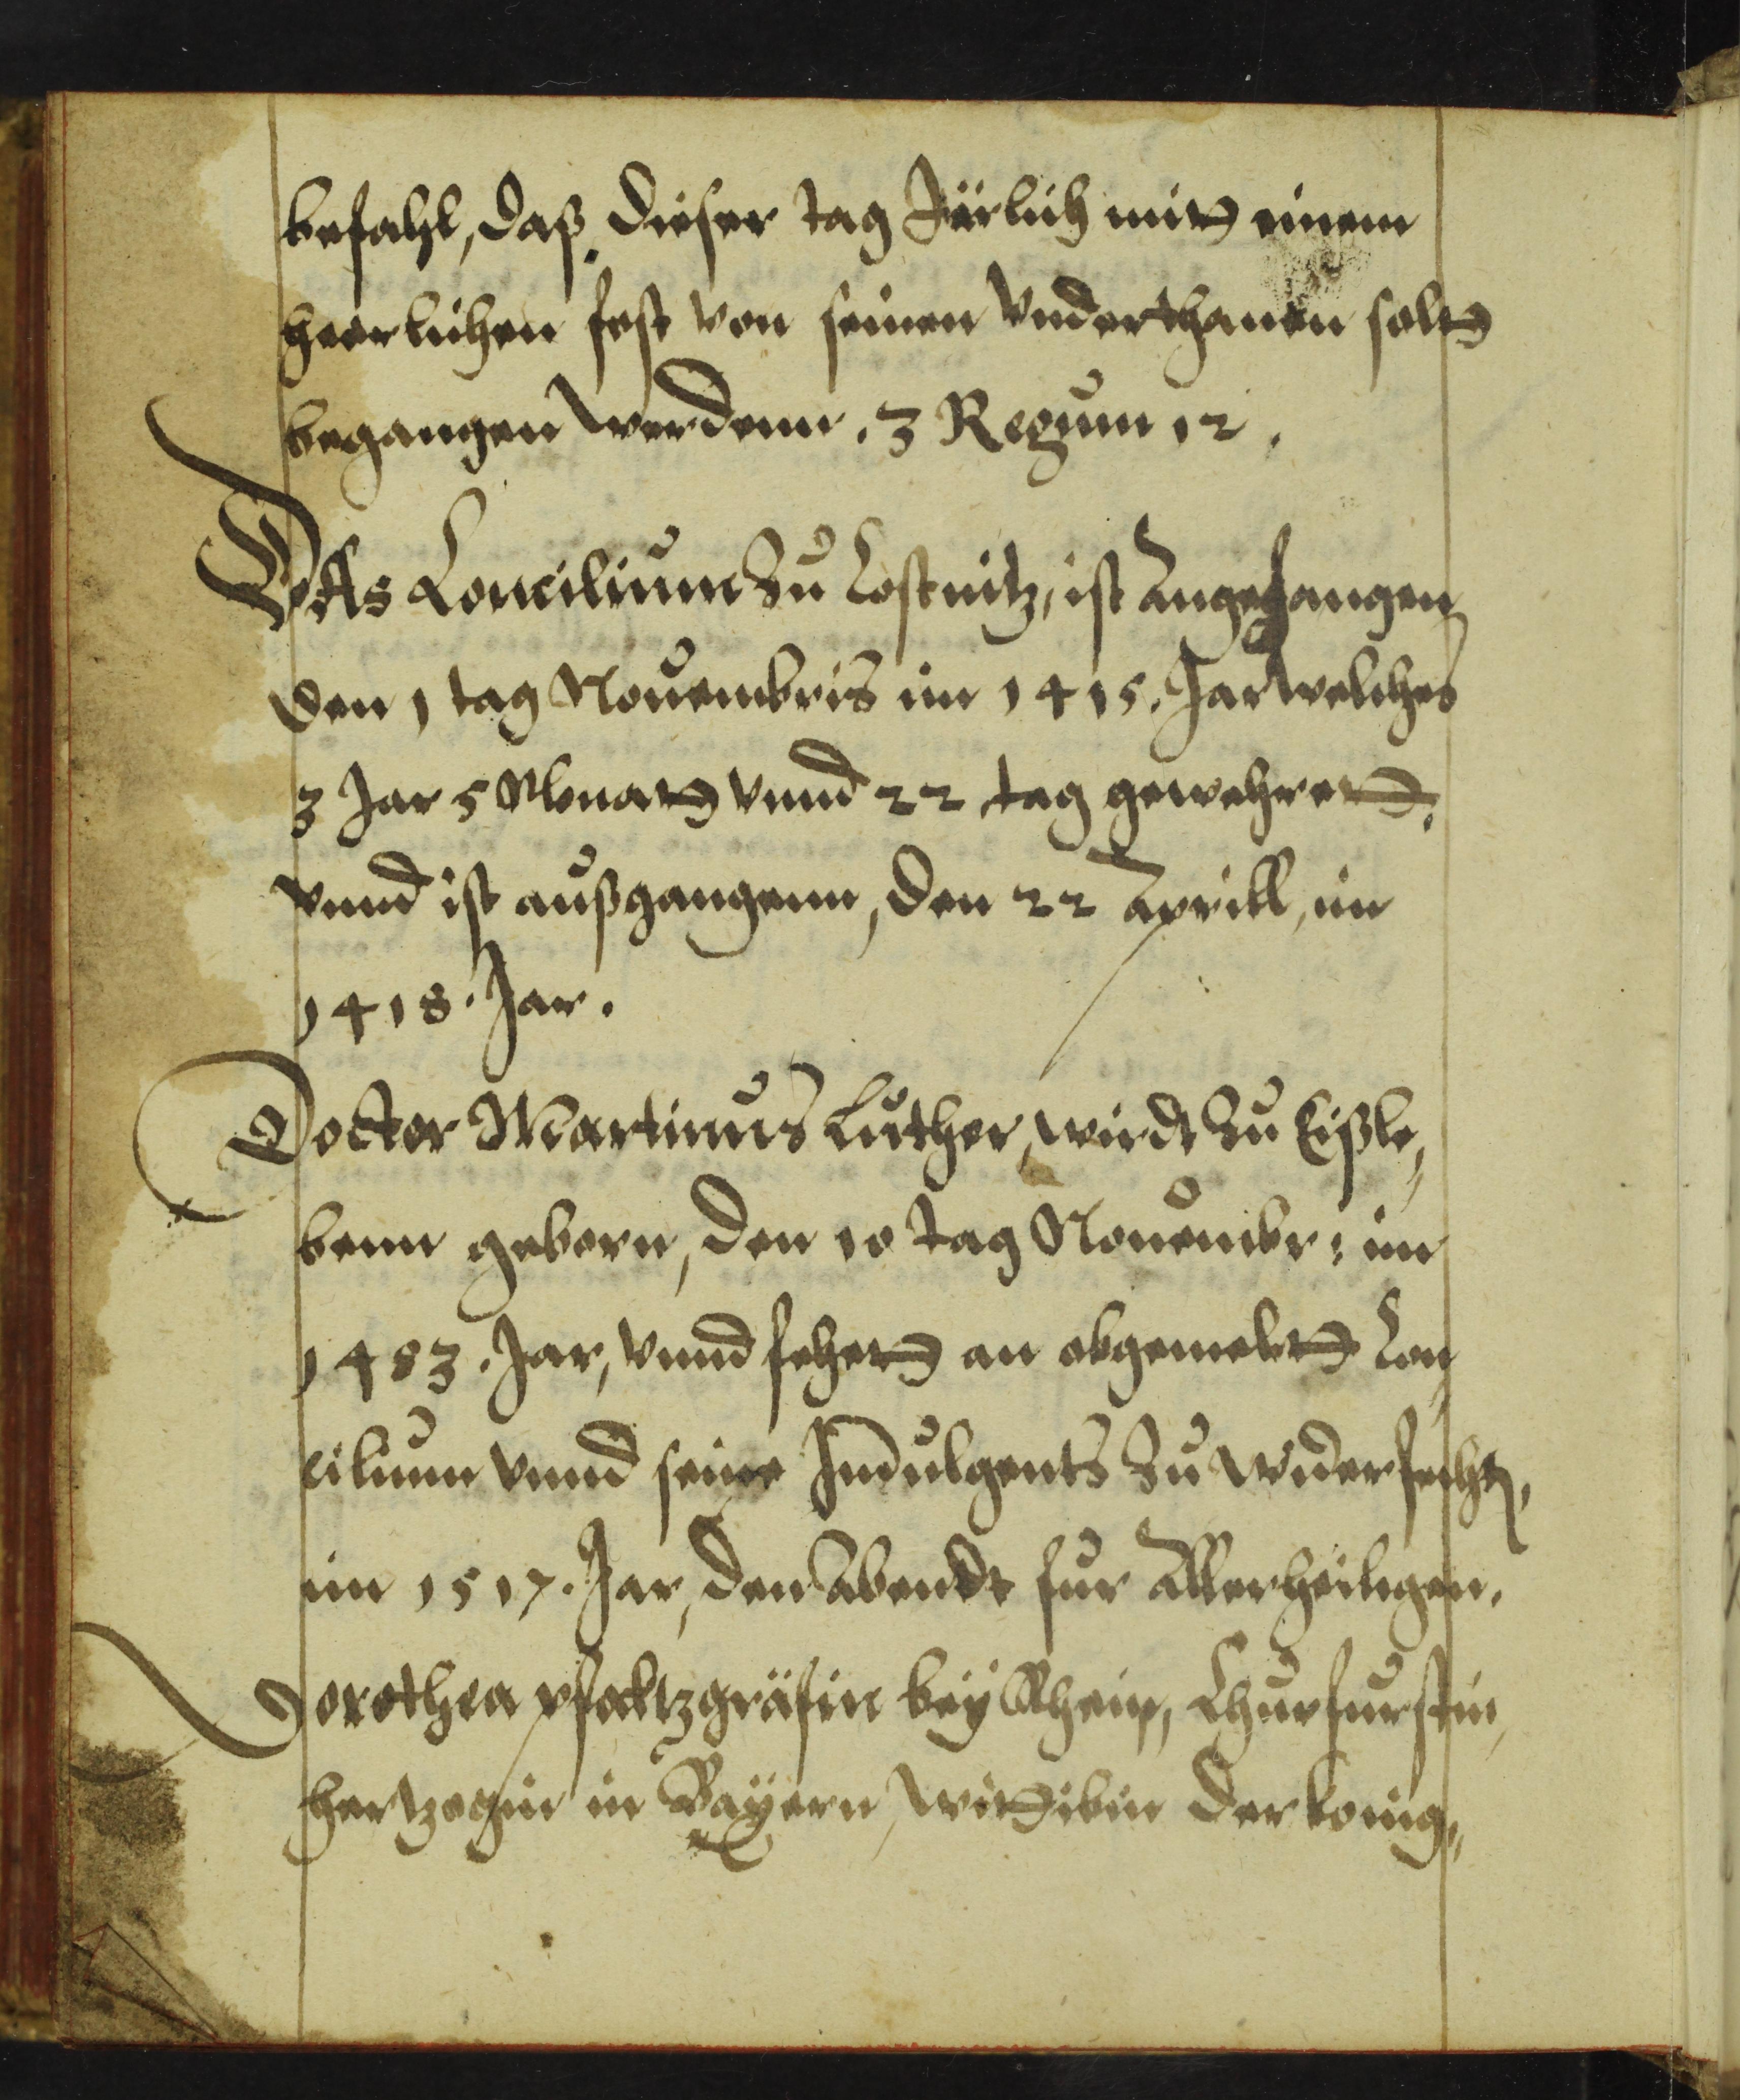 befahl, daß dieser tag Järlich mitt einem
herrlichen fest von seinen Vnderthanen soltt
begangen werdenn. 3 Regum 12.
Das Concilium Zu Costnitz, ist Angefangen
den 1 tag Nouembris im 1415. Jar welches
3 Jar 5 Monatt vnnd 22 tag gewehrett.
vnnd ist außgangenn, den 22 Aprill, im
1418. Jar.
Docktor Martinus Luther, wirdt Zu Eißle,
benn geborn, den 10 tag Nouembr: im
1483. Jar, vnnd fehett an obgemeltt Con,
cilium vnnd seine Indulgents Zu widerfecht,
im 1517. Jar, den Abendt fur Allerheiligen.
Dorothea pfaltzgräfin beÿ Rhein, Churfurstin,
hertzogin in Baÿern, wittibin der könig,,